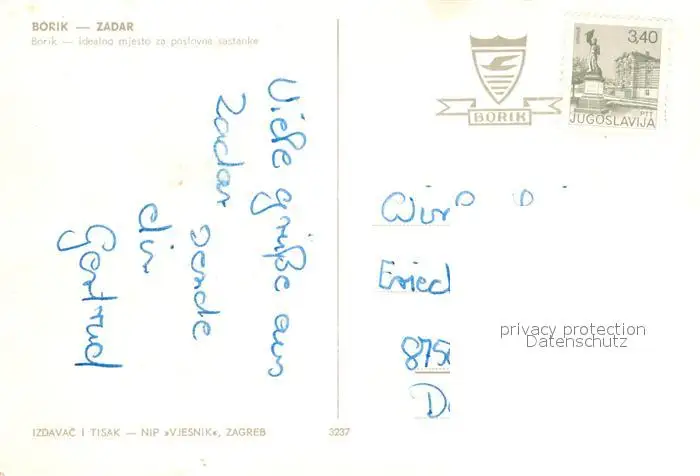 BORIK — ZADAR
Borik — idealno mjesto za poslovne sastanke
Viele grüße aus
Zadar sende
din
Gertrud
BORIK
3,40
PTT
JUGOSLAVIJA
privacy protection
Datenschutz
IZDAVAČ I TISAK — NIP »VJESNIK«, ZAGREB
3237